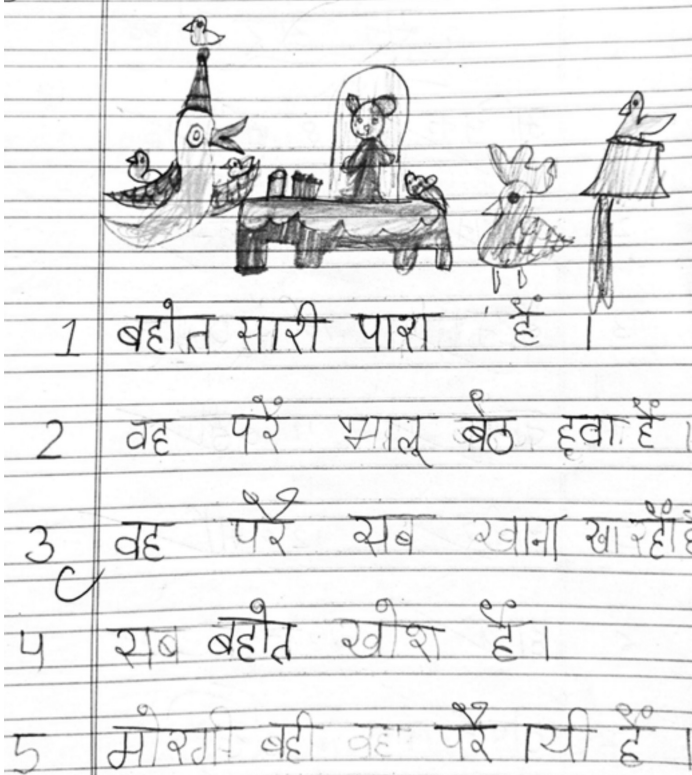 1 बहोत सारी पारा हैं ।
2 वह परैं भालू बैठ हूवा हैं ।
3 वह परैं सब खाना खा रहेंहैं
4 सब बहोत खोश हैं ।
5 मोरगी बही वह परैं